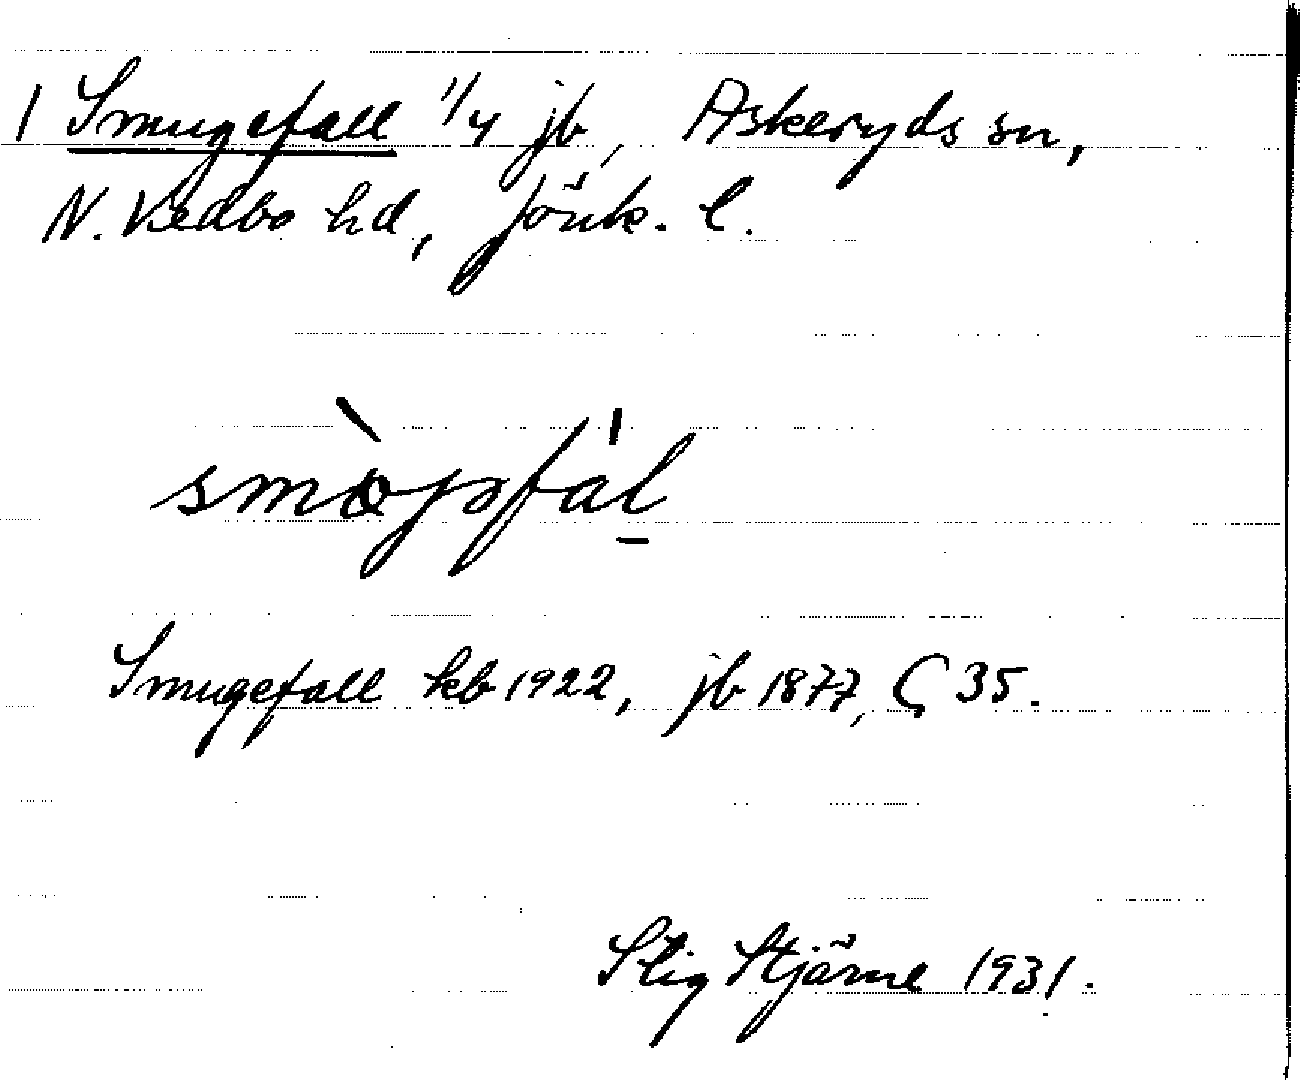 1 Smugefall 1/4 jb, Askeryds sn,
N. Vedbo hd, Jönk. l.
Smugefall kb 1922, jb 1877, C 35.
Stig Stjärne 1931.